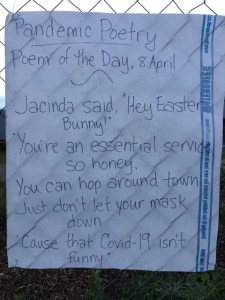 Pandemic Poetry
Poem of the Day, 8 April
Jacinda said, "Hey Easter
Bunny!"
'You're an essential service
so honey,
You can hop around town
Just don't let your mask
down
'Cause that Covid-19 isn't
funny"